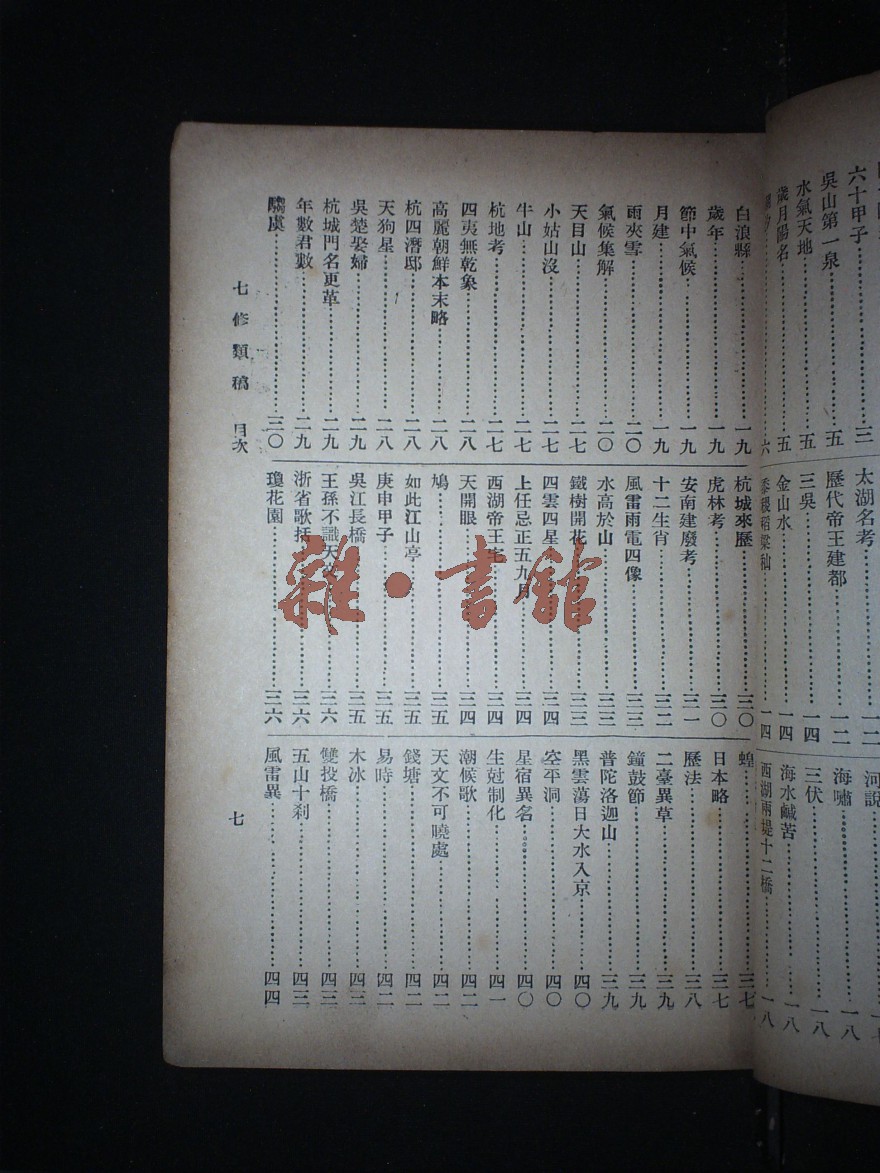 六十甲子……三
吳山第一泉……五
水氣天地……五
歲月陽名……五
……六
太湖名考……一二
歷代帝王建都……一二
三吳……一四
金山水……一四
黍稷稻粱秫……一四
河說
海嘯……一八
三伏……一八
海水鹹苦……一八
西湖兩堤十二橋……一八
白浪縣……一九
歲年……一九
節中氣候……一九
月建……一九
雨夾雪……二〇
氣候集解……二〇
天目山……二七
小姑山沒……二七
牛山……二七
杭地考……二七
四夷無乾象……二八
高麗朝鮮本末略……二八
杭四潛邸……二八
天狗星……二八
吳楚娶婦……二九
杭城門名更革……二九
年數君數……二九
騶虞……三〇
杭城來歷……三〇
虎林考……三〇
安南建廢考……三一
十二生肖……三二
風雷雨電四像……三三
水高於山……三三
鐵樹開花……三三
四雲四星……三四
上任忌正五九月……三四
西湖帝王宅……三四
天開眼……三四
鳩……三五
如此江山亭……三五
庚申甲子……三五
吳江長橋……三五
王孫不識天文……三六
浙省歌括……三六
瓊花園……三六
蝗……三七
日本略……三七
歷法……三八
二臺異草……三九
鐘鼓節……三九
普陀洛迦山……三九
黑雲蕩日大水入京……四〇
空平洞……四〇
星宿異名……四〇
生尅制化……四一
潮候歌……四二
天文不可曉處……四二
錢塘……四二
易時……四二
木冰……四三
雙投橋……四三
五山十刹……四三
風雷異……四四
七修類稿 目次
七
雜·書館